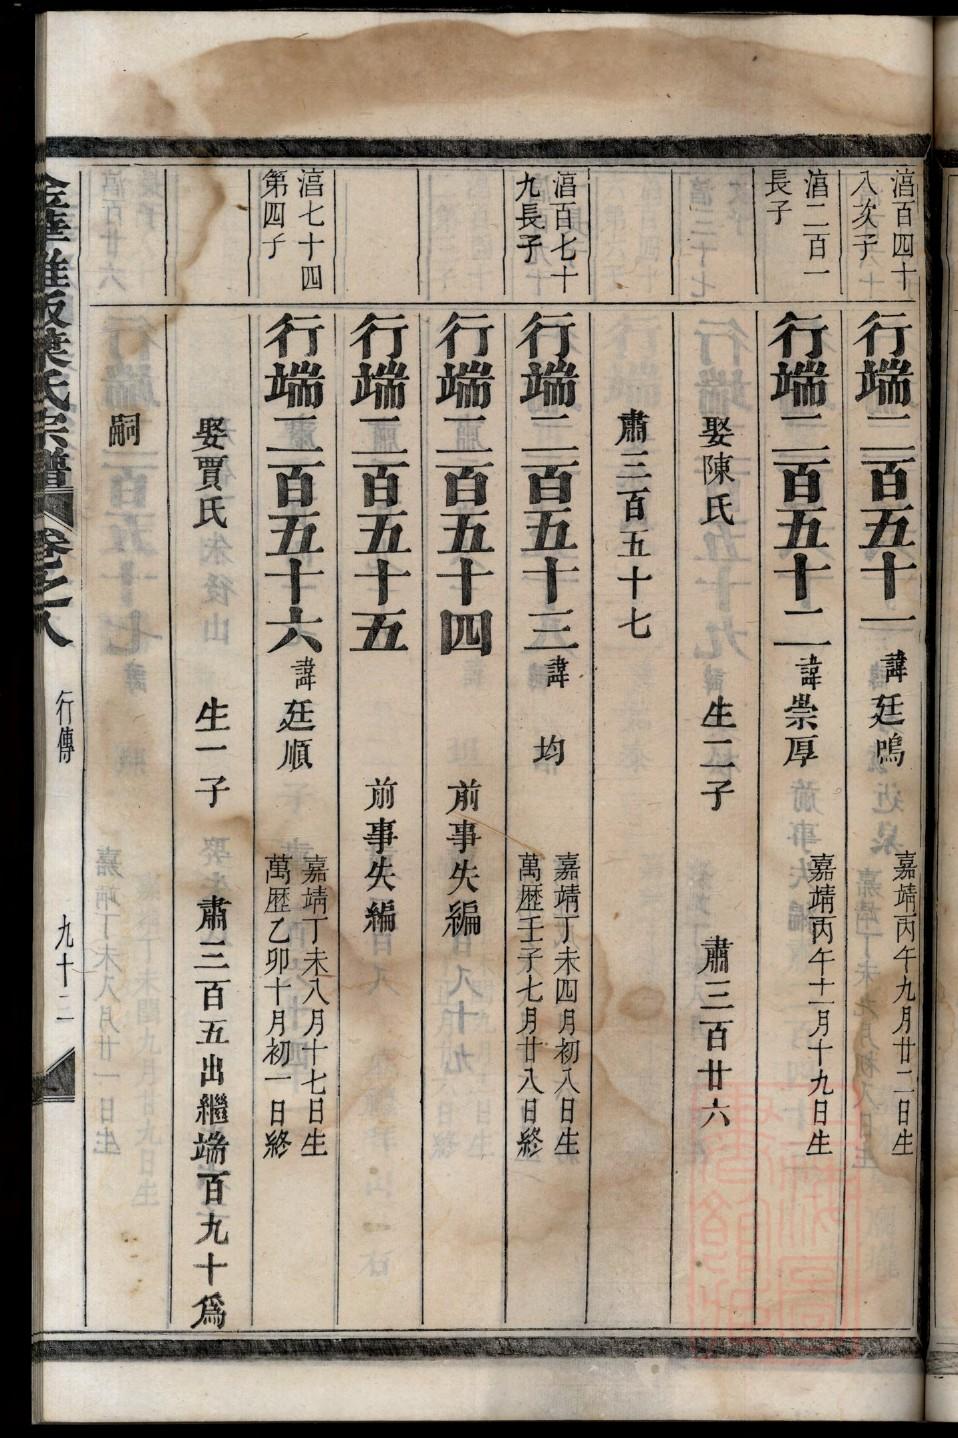 湻百四十
八次子
行端二百五十一
諱廷鳴
嘉靖丙午九月廿二日生
湻二百一
長子
行端二百五十二
諱崇厚
嘉靖丙午十一月十九日生
娶陳氏 生二子 肅三百廿六
肅三百五十七
湻百七十
九長子
行端二百五十三
諱 均
嘉靖丁未四月初八日生
萬歷壬子七月廿八日終
行端二百五十四 前事失編
行端二百五十五 前事失編
湻七十四
第四子
行端二百五十六
諱廷順
嘉靖丁未八月十七日生
萬歷乙卯十月初一日終
娶賈氏 生一子 肅三百五出繼端百九十爲
嗣
葉氏宗譜 卷之八 行傳 九十二